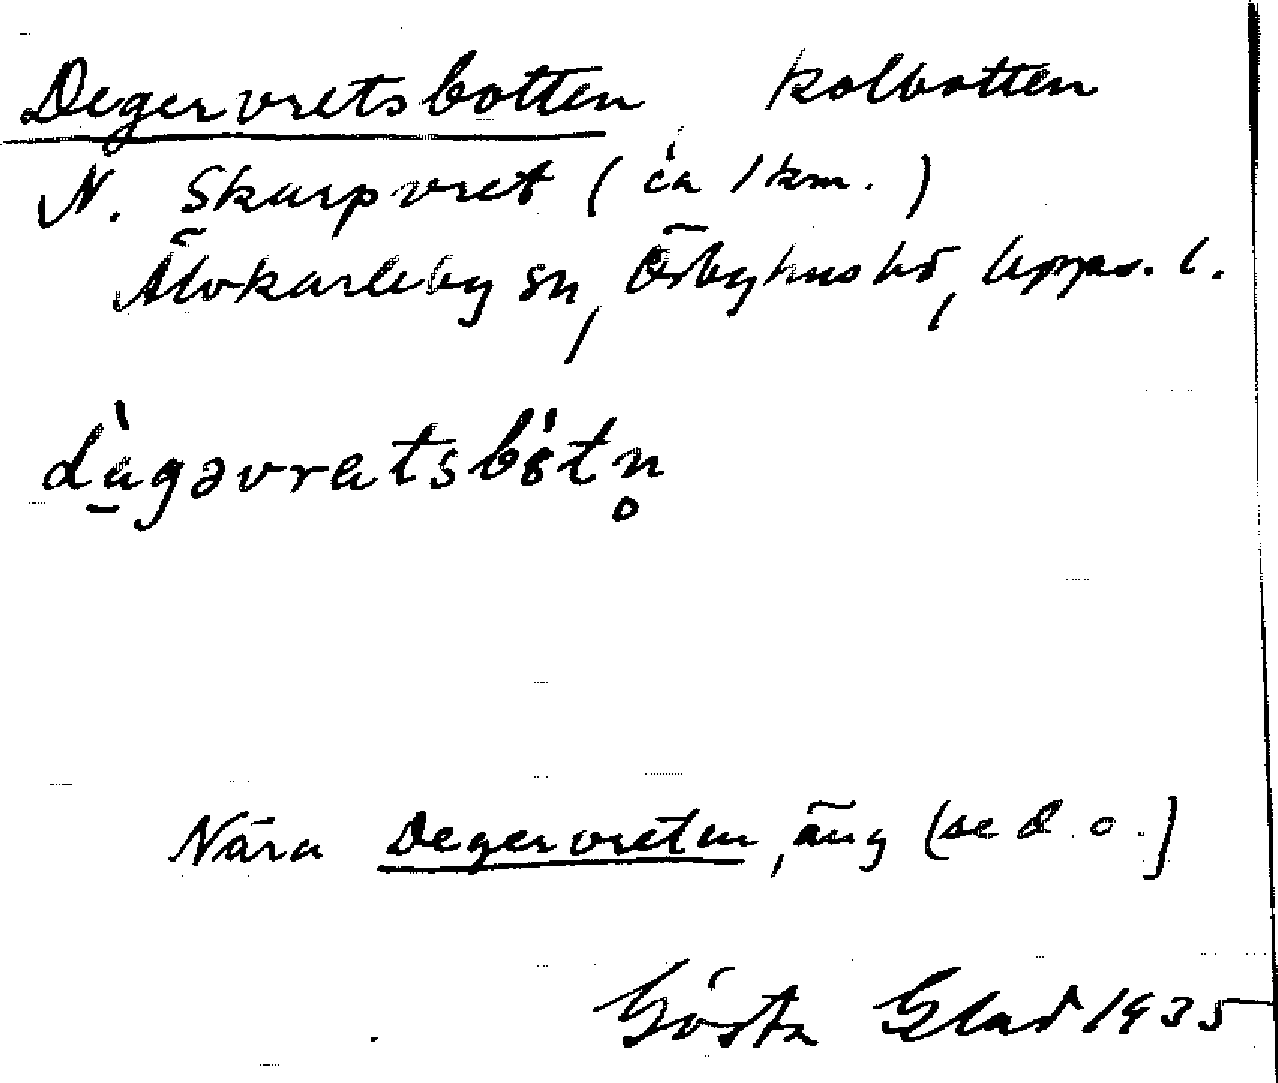 Degervretsbotten, kolbotten
N. Skarpvret (ca 1 km.)
Älvkarleby sn, Örbyhus hd, Upps. l.
dàgəvretsbötn̥
Nära Degervretar, äng (se d. o.)
Gösta Elad 1935